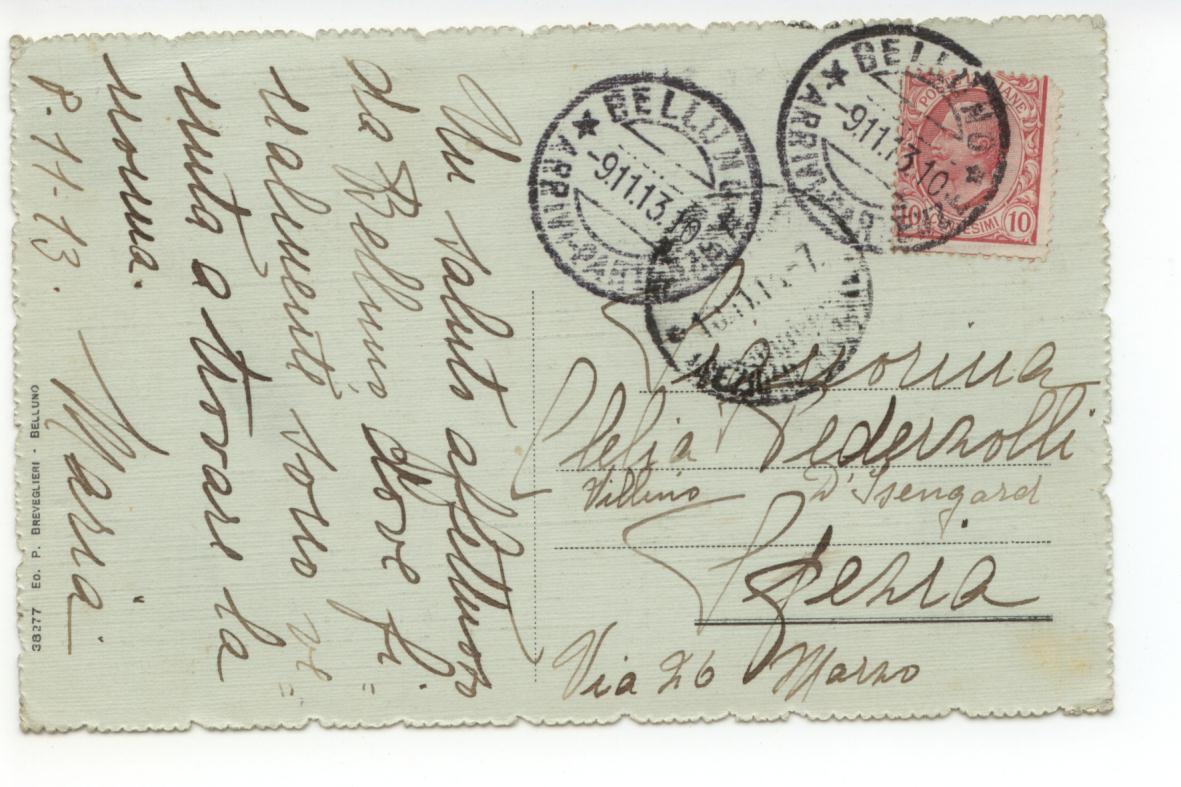 Un saluto affettuoso
da Belluno dove fi
nalmente sono ve
nuta a trovare la
nonna.
8.11-13.
Maria.
38277 ED. P. BREVEGLIERI - BELLUNO
BELLUNO
ARRIVI-PARTENZE
-9.11.13.10
BELLUNO
ARRIVI-PARTENZE
-9.11.13.10
POSTE ITALIANE
10 CENTESIMI 10
Signorina
Clelia Pederzolli
Villino D'Isengard
Spezia
Via 26 Marzo